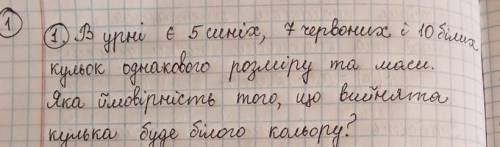 1
1. В урні є 5 синіх, 7 червоних і 10 білих
кульок однакового розміру та маси.
Яка ймовірність того, що вийнята
кулька буде білого кольору?